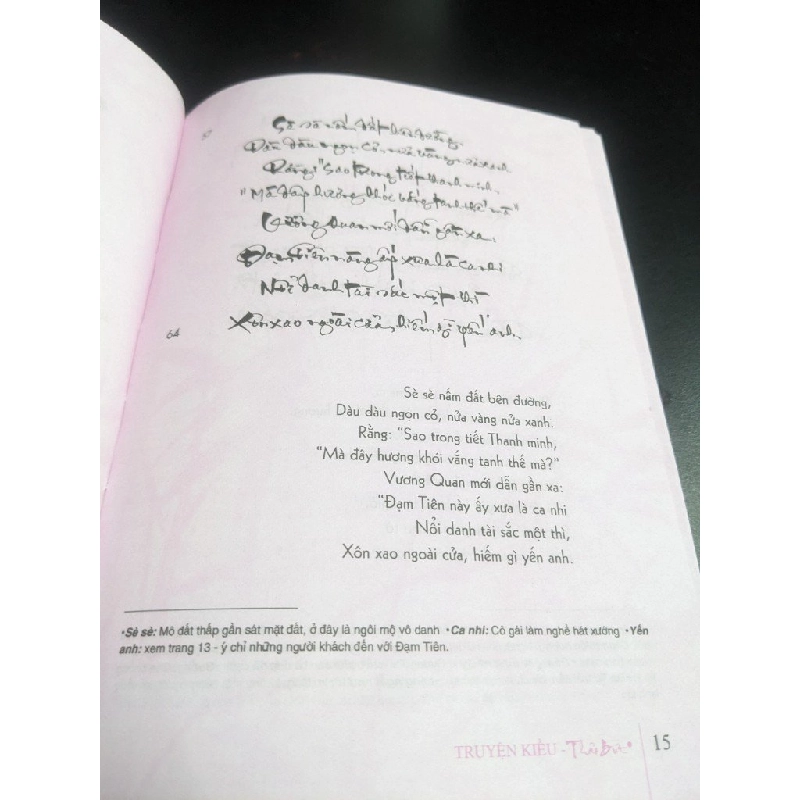 Sè sè nấm đất bên đường
Dàu dàu ngọn cỏ, nửa vàng nửa xanh
Rằng: "Sao trong tiết thanh minh,
"Mà đây hương khói vắng tanh thế mà"
Vương Quan mới dẫn gần xa,
Đạm Tiên nàng ấy xưa là ca nhi
Nổi danh tài sắc một thì
64
Xôn xao ngoài cửa, hiếm gì yến anh
Sè sè nấm đất bên đường,
Dàu dàu ngọn cỏ, nửa vàng nửa xanh.
Rằng: "Sao trong tiết Thanh minh,
"Mà đây hương khói vắng tanh thế mà?"
Vương Quan mới dẫn gần xa:
"Đạm Tiên này ấy xưa là ca nhi
Nổi danh tài sắc một thì,
Xôn xao ngoài cửa, hiếm gì yến anh.
•Sè sè: Mô đất thấp gần sát mặt đất, ở đây là ngôi mộ vô danh •Ca nhi: Cô gái làm nghề hát xướng •Yến
anh: xem trang 13 - ý chỉ những người khách đến với Đạm Tiên.
TRUYỆN KIỀU - 15